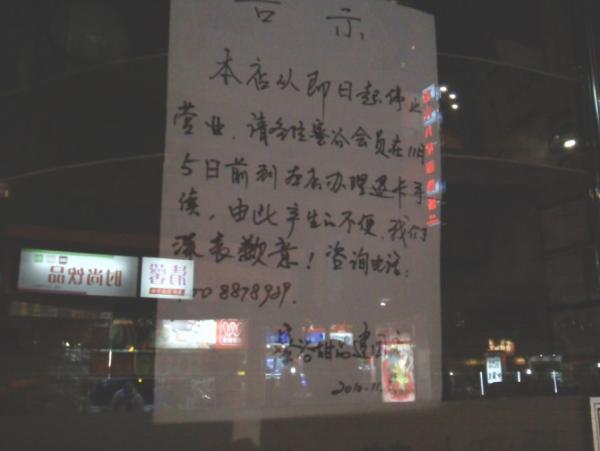 告示
本店从即日起停止
营业，请各位塞谷会员在11月
5日前到本店办理退卡手
续，由此产生的不便，我们
深表歉意！咨询电话：
8878989.
塞谷甜品
2010.11.
时尚饮品